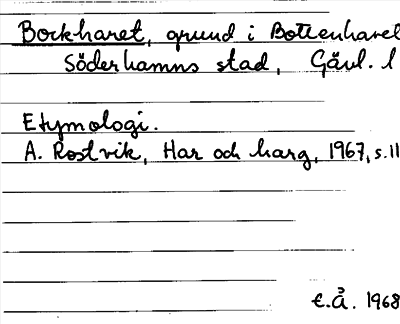 Bockharet, grund i Bottenhavet
Söderhamns stad, Gävl. l
Etymologi.
A. Rostvik, Har och harg, 1967, s. 11
E.Å. 1968